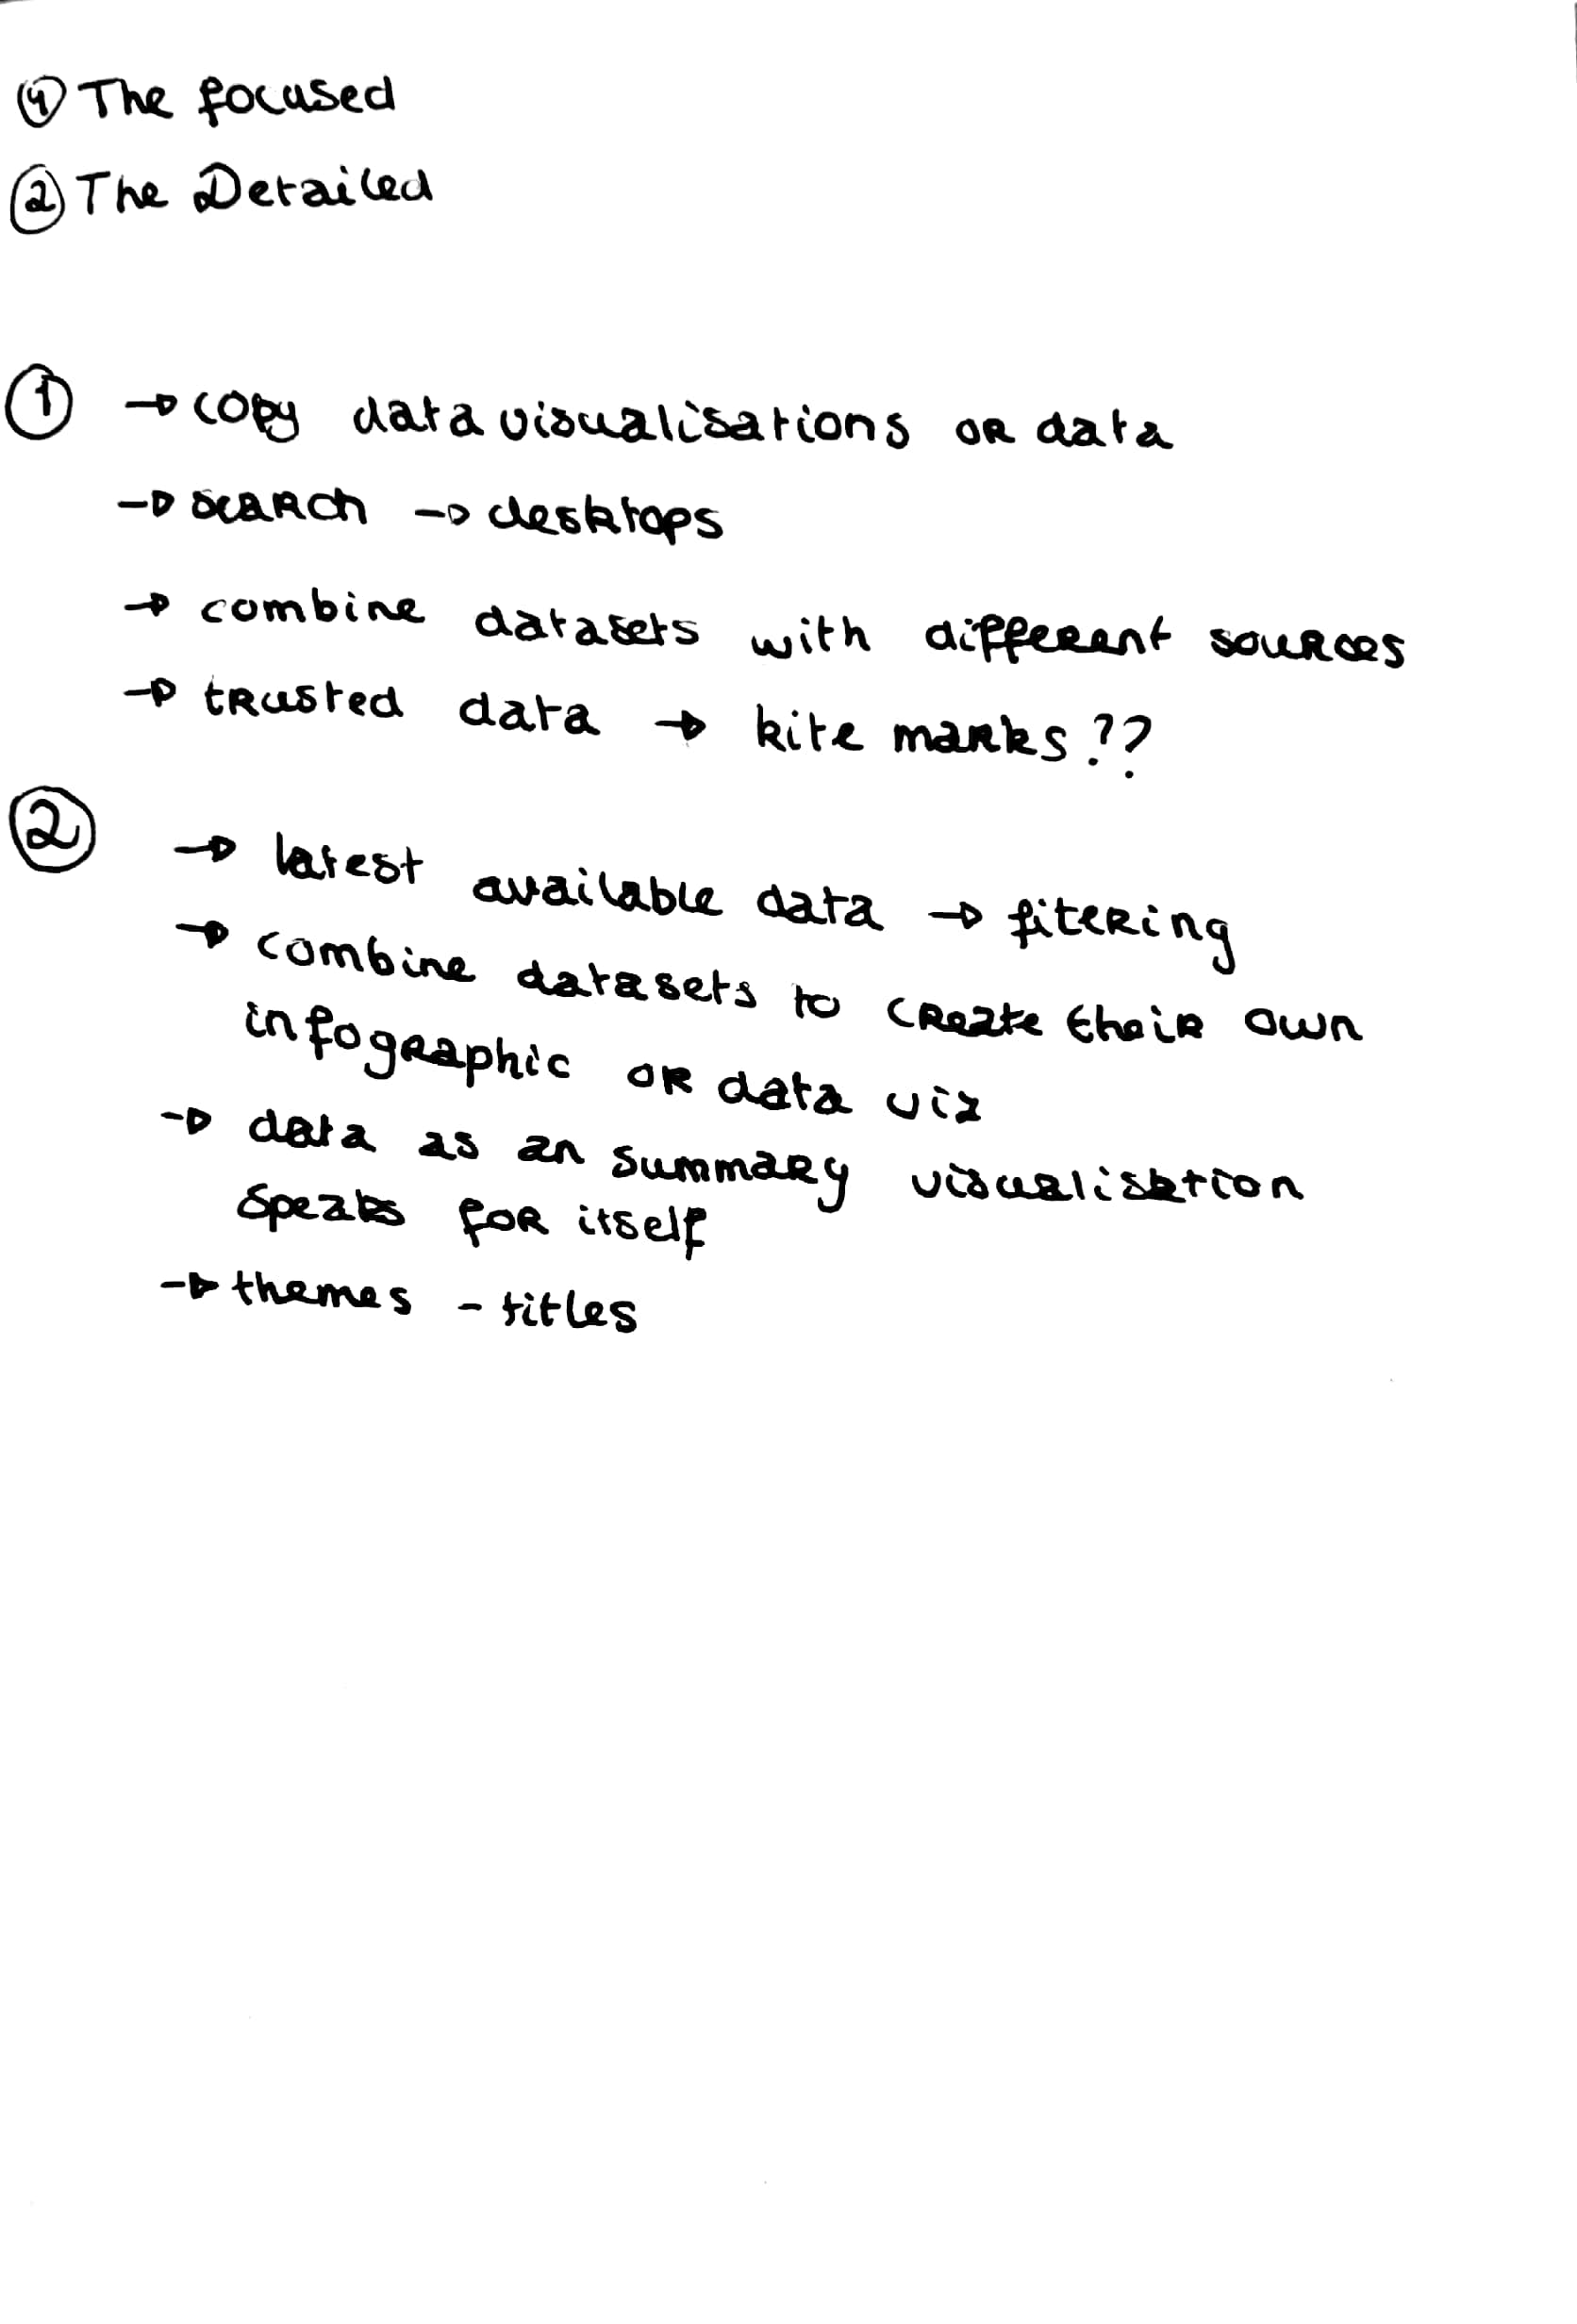 ① The focused
② The Detailed
① → copy data visualisations or data
→ search → desktops
→ combine datasets with different sources
→ trusted data → kite marks??
② → latest available data → fitering
→ combine datasets to create their own
infographic or data viz
→ data as an summary visualisation
speaks for itself
→ themes - titles